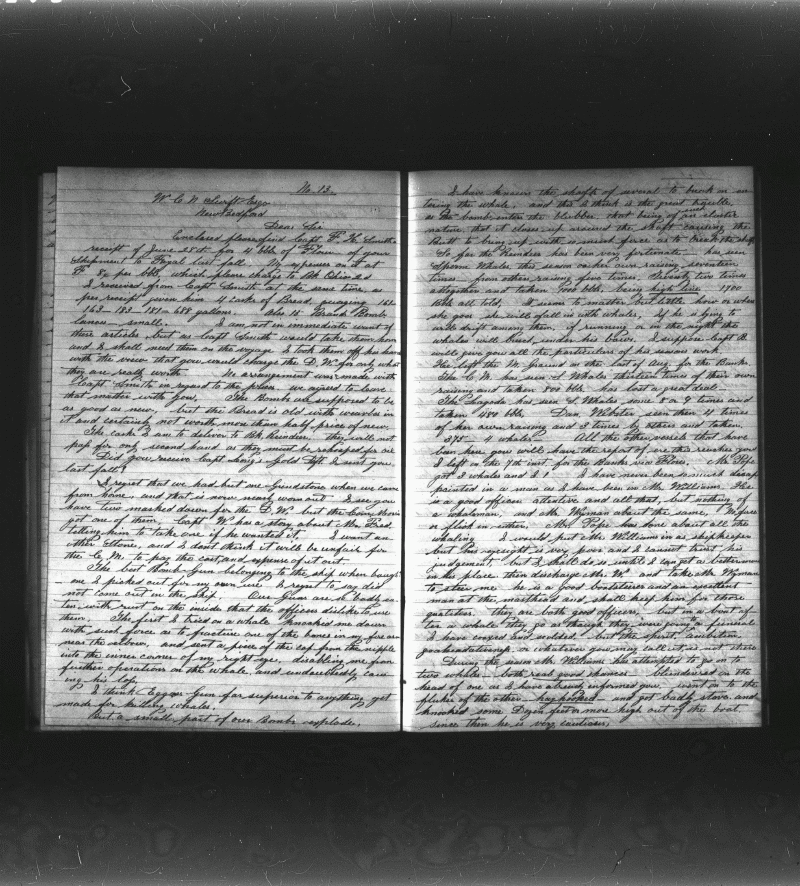 No. 13.
W. C. N. Swift Esqr
New Bedford
Dear Sir
Enclosed please find Capt F. H. Smiths
receipt of June 25th for 4 bbls of Flour of your
shipment to Fayal last fall. My expenses on it at
F. 82 per bbl, which please charge to Bk Ohio 2d
I received from Capt Smith at the same time, as
per receipt given him 4 casks of Bread, gauging 161
163 - 183 - 181 = 688 gallons. also 15 Brand Bomb
lances - small. I am not in immediate want of
these articles but as Capt Smith would take them home
and I shall need them on the voyage I took them off his hands
with the view that you would charge the D. W. for any what
they are really worth. No arrangement was made with
Capt Smith in regard to the price. we agreed to leave
that matter with you. The Bombs are supposed to be
as good as new, but the Bread is old with weavles in
it and certainly not worth more than half price of new.
The casks I am to deliver to Bk Kinders. they will not
pay for only second hand as they must be reshaped for oil
Did you receive Capt Gold Dft I sent you
last fall?
I regret that we had but one Grindstone when we came
from home, and that is now nearly worn out. I see you
have two marked down for the D. W. but the
got one of them. Capt W has a story about Mr Fred.
telling him to take one if he wanted it. I want an
other Stone, and I dont think it will be unfair for
the C. M. to pay the cost and expense of it out.
The best Bomb Gun belonging to the ship when bought
- one I picked out for my own use I regret to say did
not come out in the ship. Our Guns are so badly ea-
ten with rust on the inside that the officers dislike to use
them. The first I tried on a whale knocked me down
with such force as to fracture one of the bones in my fore arm
near the elbow, and sent a piece of the cap from the nipple
into the inner corner of my right eye, disabling me from
further operations on the whale, and undoubtedly sav-
ing his life.
I think Eggers Gun far superior to anything yet
made for killing whales.
But a small part of our Bombs explode.
I have known the shafts of several to break on en-
tering the whale; and this I think is the great trouble,
as the bomb enters the blubber, that being of an elastic
nature that it closes up around the shaft causing the
Butt to bring up with so much force as to break the shaft
So far the Kinders has been very fortunate. has seen
Sperm Whales this season or her own raising seventeen
times - from others raising four times, Seventy two times
altogether and taken 700 bbls, being high line 1900
bbls all told, It seems to matter but little how or when
she goes she will fall in with whales; If he is lying to
will drift among them, if running or in the night the
whales will breach under his bows. I suppose Capt B.
will give you all the particulars of his seasons work.
He left the W Ground on the last of Aug. for the Banks
The C. M. has seen S Whales thirteen times of their own
raising and taken 800 bbls. has lost a great deal.
The Lagoda has seen S Whales some 8 or 9 times and
taken 480 bbls. Dan. Webster seen them 4 times
of her own raising and 3 times by others and taken
375 - 4 whales. All the other vessels that have
been here you will have the report of ere this reaches you
I left on the 7th inst for the Banks via Flores, Mr Pope
got 3 whales and I 1 I have never been so much disap
pointed in a man as I have been in Mr Williams. He
is a good officer, attentive and all that, but nothing of
a whaleman, and Mr Wyman about the same, No fire
or flash in either, Mr. Pope has done about all the
whaling. I would put Mr Williams in as shipkeeper
but his eyesight is very poor and I cannot trust his
judgement. but I shall do so until I can get a better man
in his place. then discharge Mr W. and take Mr Wyman
to steer me. he is a good boatsteerer and an excellent
man at the masthead and shall keep him for those
qualities. they are both good officers, but in a boat af-
ter a whale they go as though they were going a funeral
I have coaxed and scolded - but the spirit, ambition,
goaheaditiveness, or whatever you may call it, is not there
During the season Mr Williams has attempted to go on to
two whales - both real good chances - blundered on the
head of one as I have already informed you - went on to the
flukes of the other, got badly stove and
knocked some Dozen feet or more high out of the boat.
since then he is very cautious,